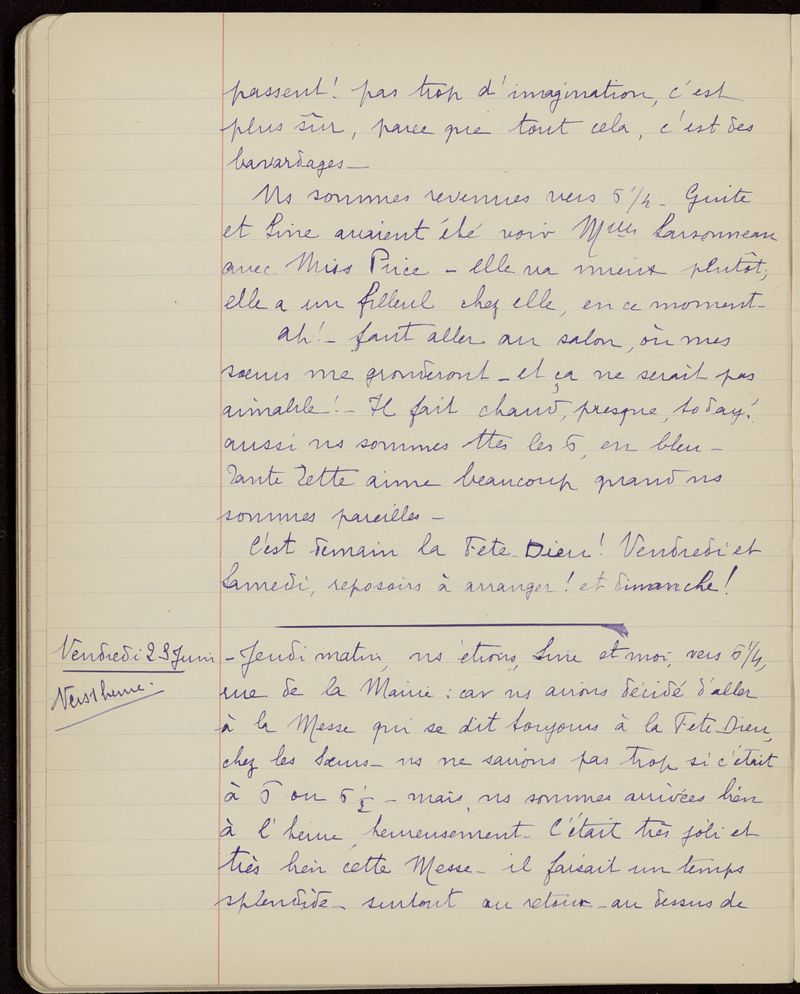 passent! pas trop d'imagination, c'est
plus sûr, parce que tout cela, c'est des
bavardages—
Ns sommes revenues vers 5 1/4 - Guite
et Line avaient été voir Melles Larsonneau
avec Miss Price - elle va mieux plutôt;
elle a un filleul chez elle, en ce moment-
ah!- faut aller au salon, où mes
sœurs me gronderont - et ça ne serait pas
aimable!- Il fait chaud, presque, to day!
aussi ns sommes ttes les 5, en bleu-
Tante Zette aime beaucoup quand ns
sommes pareilles-
C'est demain la Fete-Dieu! Vendredi et
Samedi, reposoirs à arranger! et dimanche!
Vendredi 23 Juin
Vers 1 heure.
- Jeudi matin, ns étions, Line et moi, vers 5 1/4,
rue de la Mairie: car ns avions décidé d'aller
à la Messe qui se dit toujours à la Fete-Dieu,
chez les Sœurs- ns ne savions pas trop si c'était
à 5 ou 5 1/2 - mais, ns sommes arrivées bien
à l'heure, heureusement- C'était très joli et
très bien cette Messe- il faisait un temps
splendide- surtout au retour- au dessus de